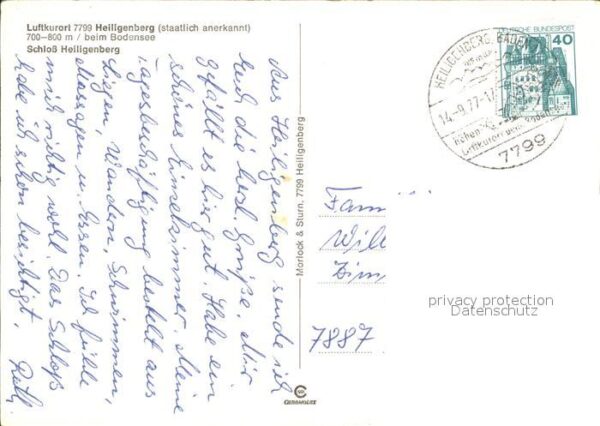 Luftkurort 7799 Heiligenberg (staatlich anerkannt)
700-800 m / beim Bodensee
Schloß Heiligenberg
Aus Heiligenberg sende ich
Euch die best. Grüße. Mir
gefällt es hier gut. Habe ein
schönes Einzelzimmer. Meine
Tagesbeschäftigung besteht aus
Liegen, Wandern, Schwimmen,
Massagen u. Essen. Ich fühle
mich richtig wohl. Das Schloß
habe ich schon besichtigt.
Morlock & Sturn, 7799 Heiligenberg
Fam
Wil
Zim
7887
HEILIGENBERG, BADEN
14.-9.77-1
höhen-
Luftkurort
7799
DEUTSCHE BUNDESPOST
40
privacy protection
Datenschutz